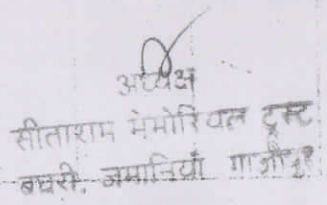 अध्यक्ष
सीताराम मेमोरियल ट्रस्ट
बघरी, जमानियाँ गाजीपुर